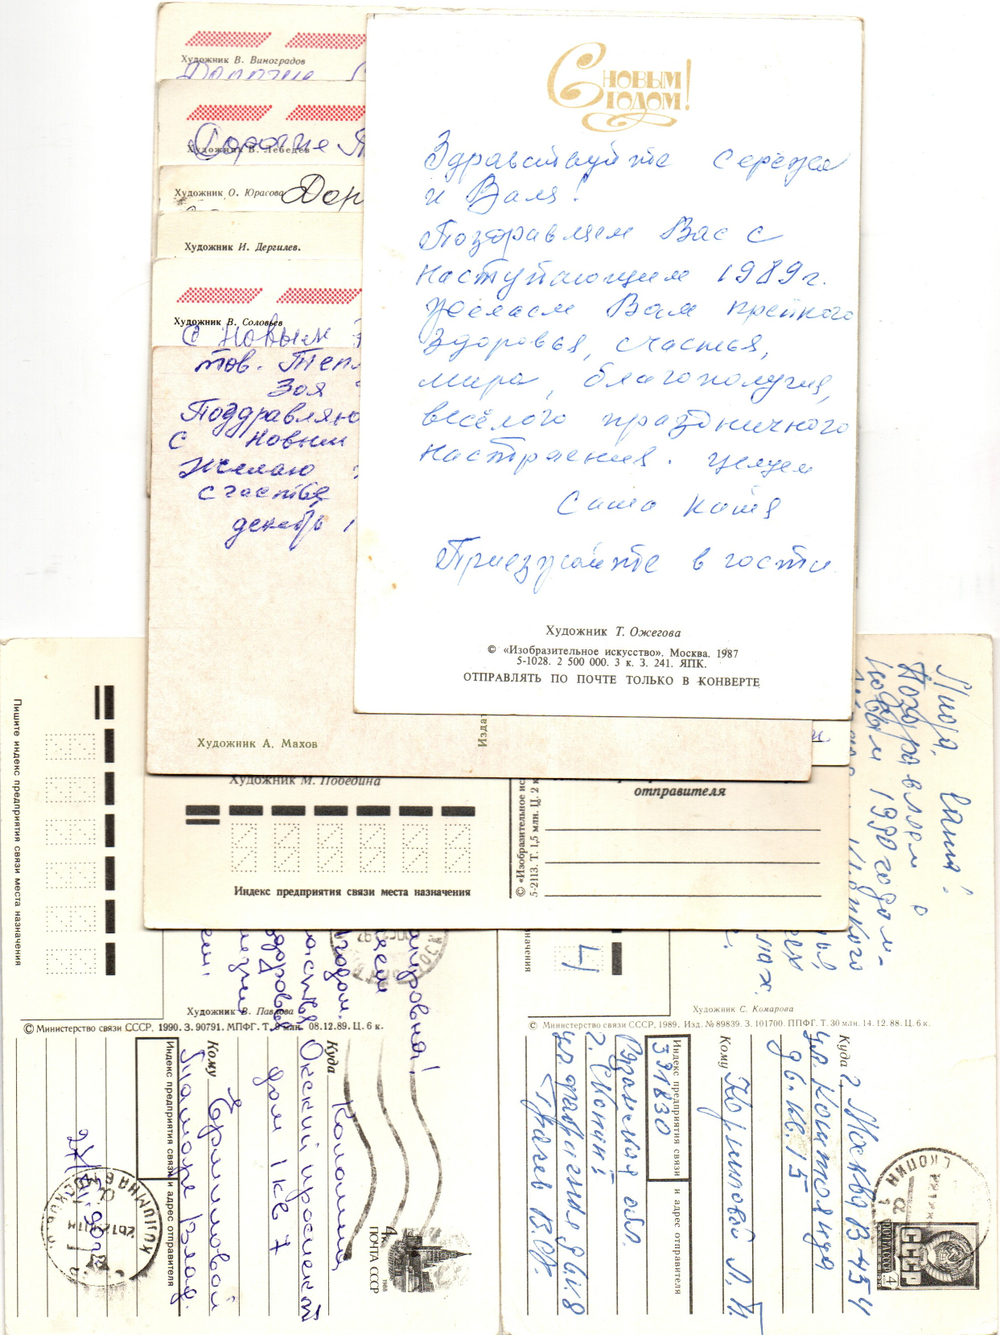 Художник В. Виноградов
Дорогие
Художник В. Лебедев
Дорогие
Художник О. Юрасова
Дор
Художник И. Дергилев.
Художник В. Соловьев
С Новым
тов. Тепл
Зоя
Поздравляю
с Новым
желаю
счастья
декабрь 1
Художник А. Махов
Издат
С НОВЫМ
ГОДОМ!
Здравствуйте Сережа
и Валя!
Поздравляем Вас с
наступающим 1989г.
Желаем Вам крепкого
здоровья, счастья,
мира, благополучия,
весёлого праздничного
настроения. Целуем
Саша Катя
Приезжайте в гости.
Художник Т. Ожегова
© «Изобразительное искусство». Москва. 1987
5-1028. 2 500 000. 3 к. З. 241. ЯПК.
ОТПРАВЛЯТЬ ПО ПОЧТЕ ТОЛЬКО В КОНВЕРТЕ
Художник М. Победина
Индекс предприятия связи места назначения
© «Изобразительное ис
5-2113. Т. 1,5 млн. Ц. 2 к
отправителя
Пишите индекс предприятия связи места назначения
Художник В. Павлова
© Министерство связи СССР, 1990. З. 90791. МПФГ. Т. 9 млн. 08.12.89. Ц. 6 к.
Куда
Коломна
Окский проспект
дом 1 кв 7
Кому
Ермиловой
Тамаре Влад.
Индекс предприятия связи и адрес отправителя
4к
ПОЧТА СССР
1988
Лида, Саша!
Поздравляем с
Новым 1990 годом.
назначения
4
Художник С. Комарова
© Министерство связи СССР, 1989. Изд. № 89839. З. 101700. ППФГ. Т. 30 млн. 14.12.88. Ц. 6 к.
Куда
г. Москва В-454
ул. Коштоянца
Кому
Корниловой Л. И.
Индекс предприятия связи и адрес отправителя
391830
Рязанская обл.
г. Скопин
СКОПИН
СССР
4